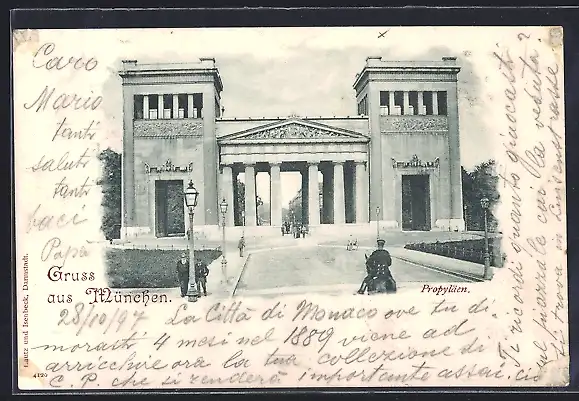 Caro
Mario
tanti
saluti
tanti
baci
Papà
Gruss
aus München.
Propyläen.
Lautz und Isenbeck, Darmstadt.
4120
28/10/97 La Città di Monaco ove tu di-
morasti 4 mesi nel 1889 viene ad
arricchire ora la tua collezione di
C. P. che si renderà importante assai. cio
Ti ricordi quanto giuocasti
sul piazzale cui la veduta
si trova in